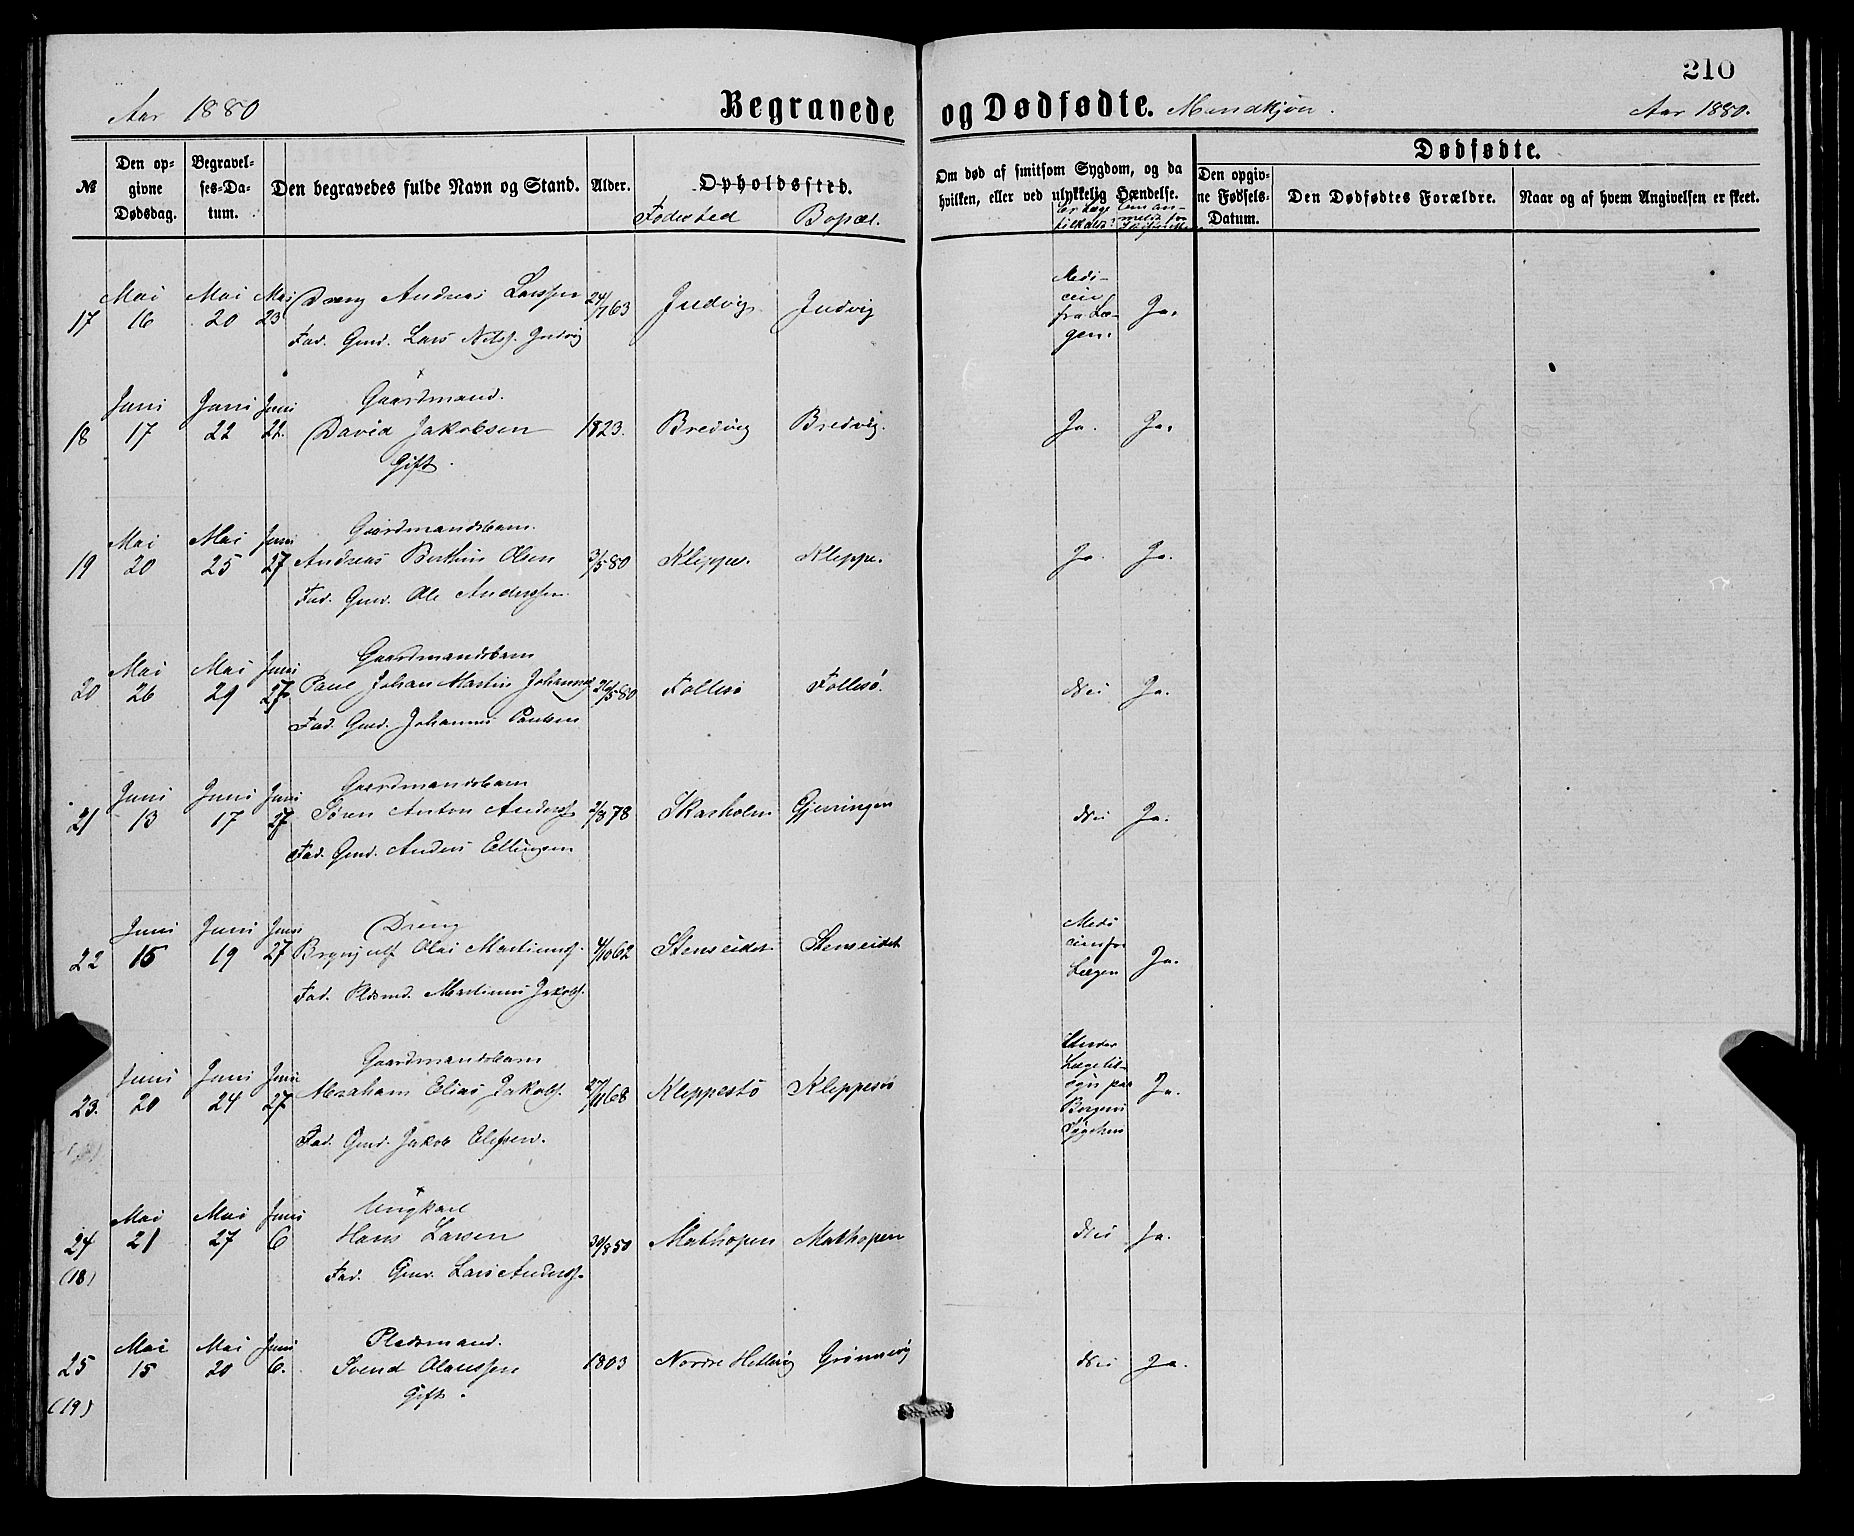 210
Aar 1880
Begravede
og Dødfødte. Mandkjøn.
Aar 1880.
№
Den opgivne Dødsdag.
Begravelses-Datum.
Den begravedes fulde Navn og Stand.
Alder.
Opholdssted.
Fødested
Bopæl.
Om død af smitsom Sygdom, og da hvilken, eller ved ulykkelig Hændelse.
Dødfødte.
Den opgivne Fødsels-Datum.
Den Dødfødtes Forældre.
Naar og af hvem Angivelsen er skeet.
17 Mai 16 Mai 20 Mai 23 Dreng Andreas Larssen 24/7 63 Indvig Indvig Medicin fra Lægen. Ja.
Fad. Gmd. Lars Nilss. Indvig
Gaardmand.
18 Juni 17 Juni 22 Juni 22. David Jakobsen 1823. Bredvig Bredvig. Ja. Ja.
Gift.
Gaardmandsbarn.
19 Mai 20 Mai 25 Juni 27 Andreas Berthin Olsen 3/5 80 Kleppe. Kleppe. Ja. Ja.
Fad. Gmd. Ole Anderssen.
Gaardmandsbarn
20 Mai 26 Mai 29 Juni 27. Paul Johan Martin Johanness. 26/5 80 Follesø Follesø. Nei Ja.
Fad. Gmd. Johannes Paulsen
Gaardmandsbarn
21 Juni 13 Juni 17 Juni 27 Søren Anton Anderss. 2/8 78 Skarholm Gjerringen Nei Ja.
Fad. Gmd. Anders Ellingsen
Dreng
22 Juni 15 Juni 19 Juni 27 Brynjulf Olai Martinuss. 4/10 62 Stenseidet Stenseidet Medicin fra Lægen Ja.
Fad. Pldsmd. Martinus Jakobs.
Gaardmandsbarn
23. Juni 20 Juni 24 Juni 27. Abraham Elias Jakobs. 27/11 68 Kleppestø Kleppesø Under Lægetilsyn paa Bergens Sygehus Ja.
Fad. Gmd. Jakob Elissen.
Ungkarl
24 Mai 21 Mai 27 Juni 6 Hans Larsen 30/8 50 Mathopen Mathopen Nei Ja.
(18) Fad. Gmd. Lars Anderss.
Pladsmand.
25 Mai 15 Mai 20 Juni 6. Svend Olanssen 1803 Nordre Hellvig Grønnevig Nei Ja.
(19) Gift.